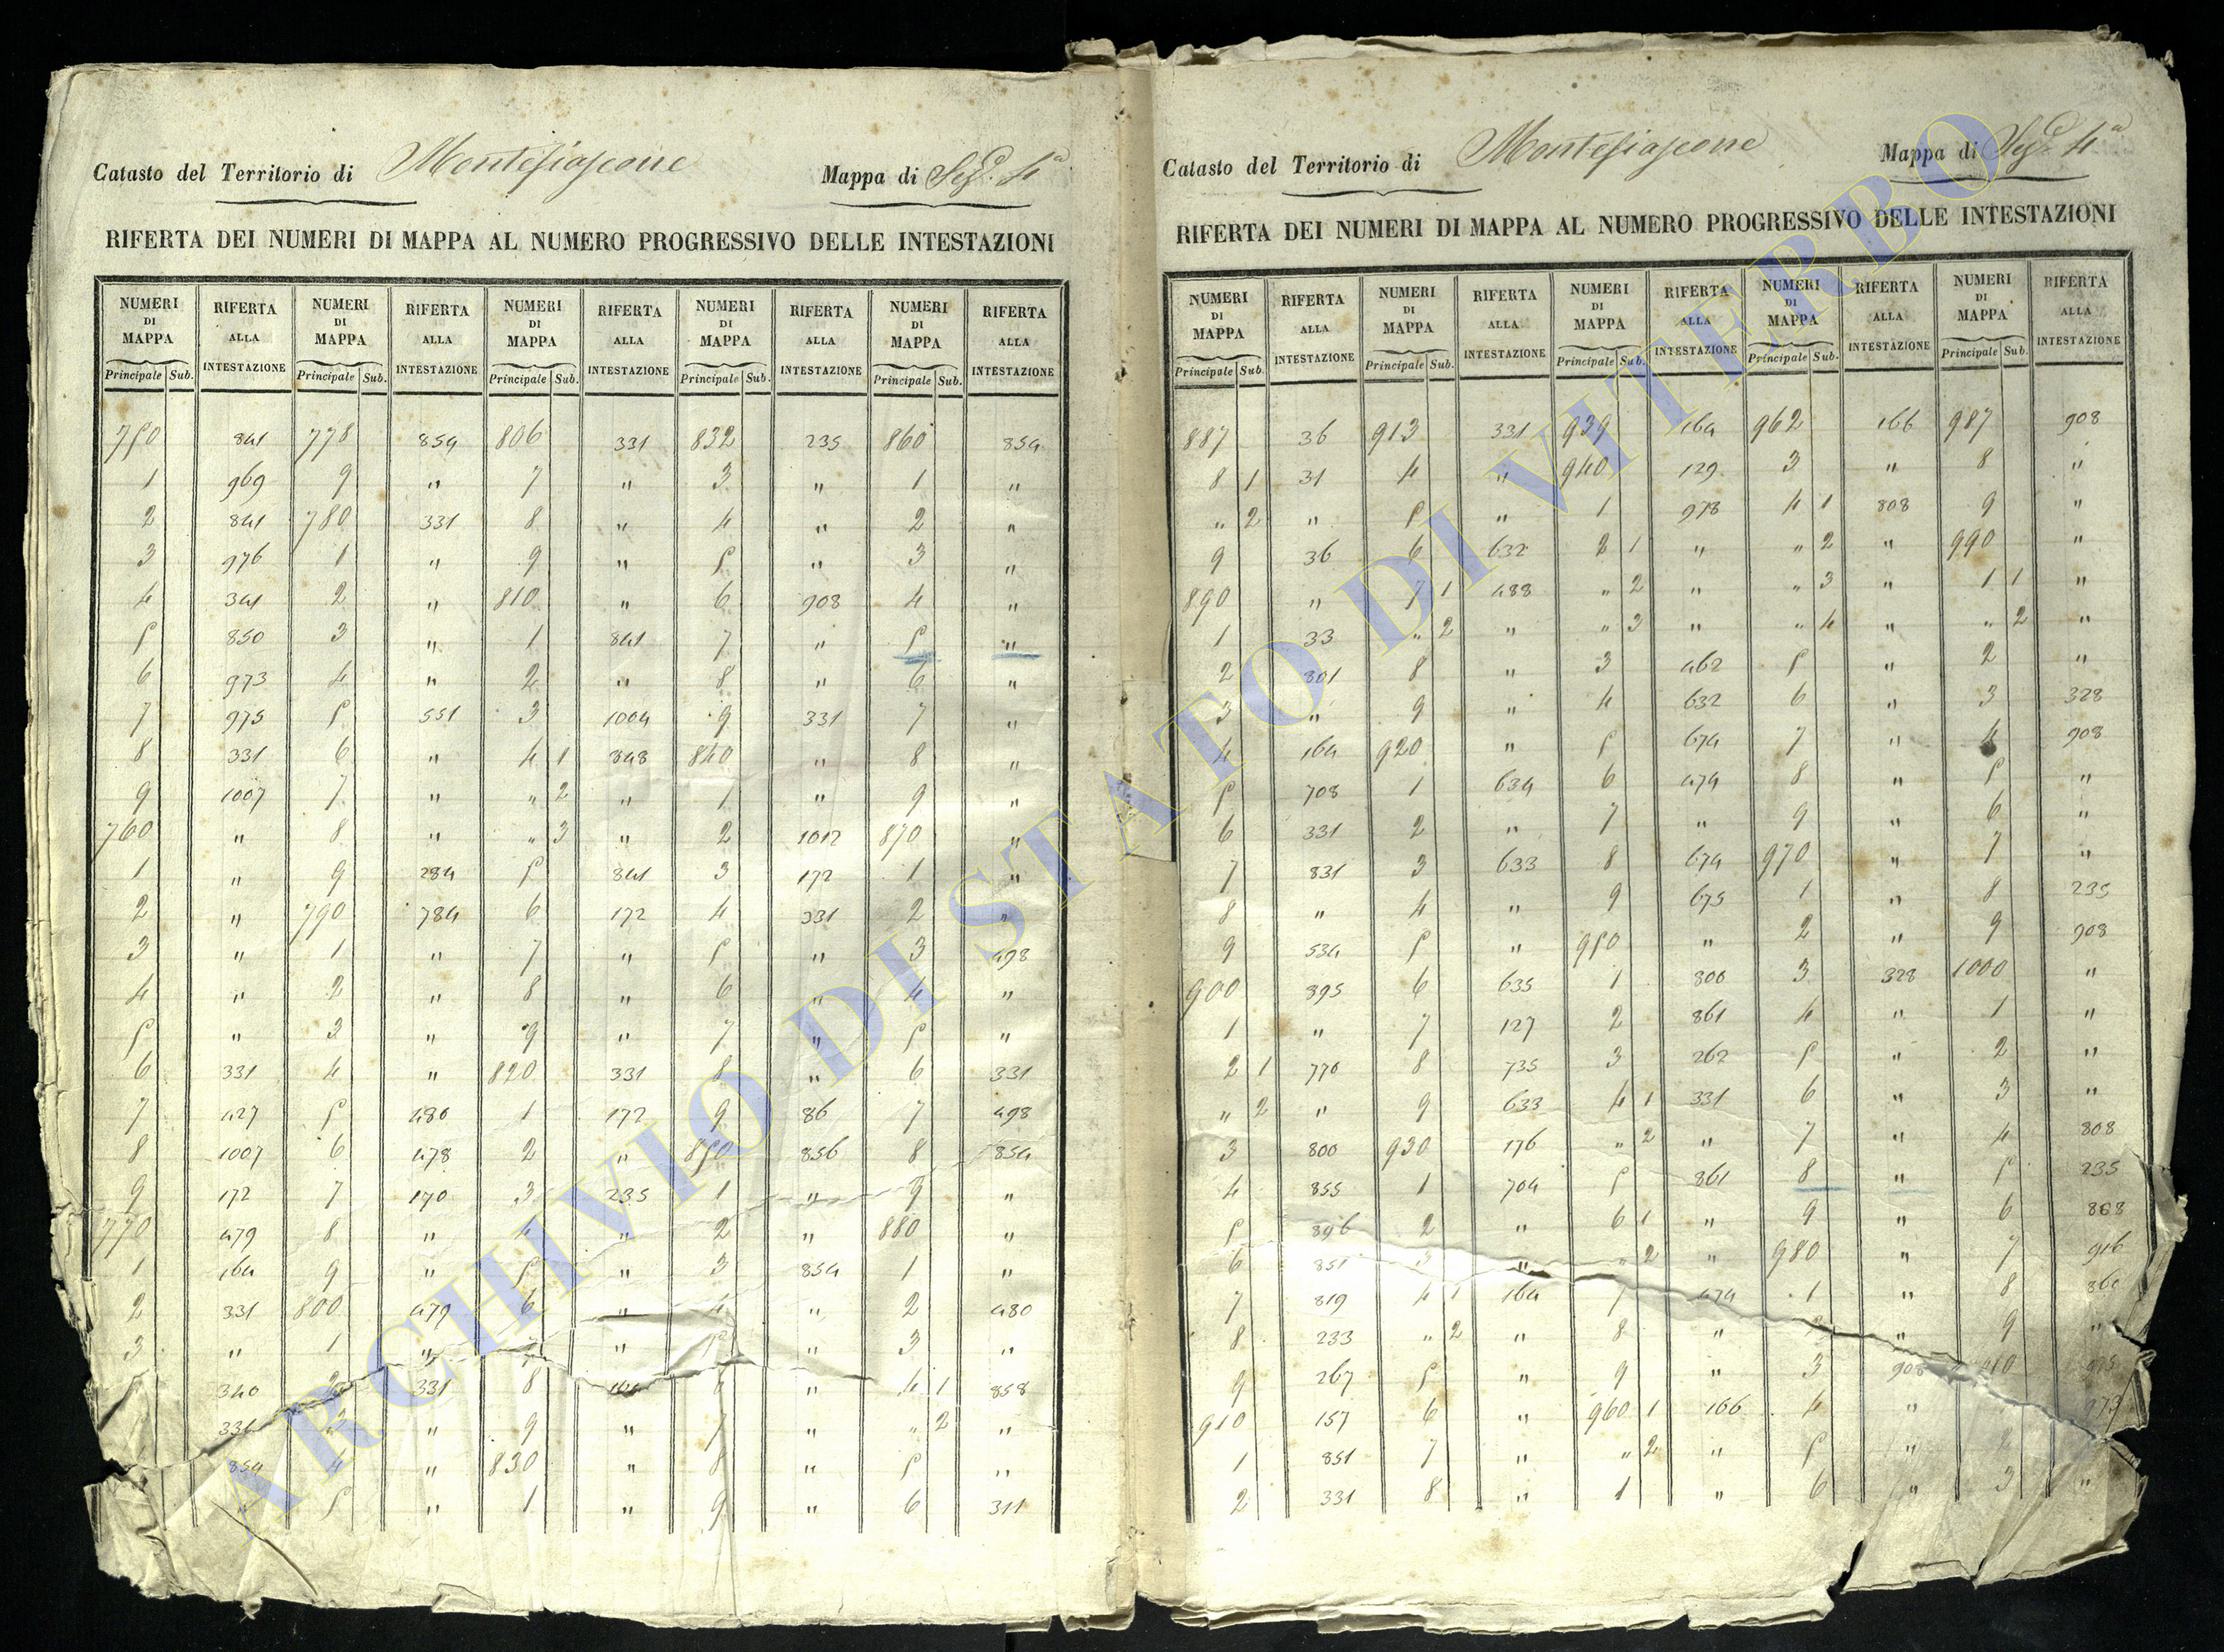 Catasto del Territorio di Montefiascone Mappa di Seg. 4ª
RIFERTA DEI NUMERI DI MAPPA AL NUMERO PROGRESSIVO DELLE INTESTAZIONI
NUMERI DI MAPPA RIFERTA ALLA INTESTAZIONE NUMERI DI MAPPA RIFERTA ALLA INTESTAZIONE NUMERI DI MAPPA RIFERTA ALLA INTESTAZIONE NUMERI DI MAPPA RIFERTA ALLA INTESTAZIONE NUMERI DI MAPPA RIFERTA ALLA INTESTAZIONE
Principale Sub. Principale Sub. Principale Sub. Principale Sub. Principale Sub.
750 841 778 854 806 331 832 235 860 854
1 969 9 " 7 " 3 " 1 "
2 841 780 331 8 " 4 " 2 "
3 976 1 " 9 " 5 " 3 "
4 341 2 " 810 " 6 908 4 "
5 850 3 " 1 841 7 " 5 "
6 973 4 " 2 " 8 " 6 "
7 975 5 551 3 1004 9 331 7 "
8 331 6 " 4 1 848 840 " 8 "
9 1007 7 " " 2 " 1 " 9 "
760 " 8 " " 3 " 2 1012 870 "
1 " 9 284 5 841 3 172 1 "
2 " 790 784 6 172 4 331 2 "
3 " 1 " 7 " 5 " 3 498
4 " 2 " 8 " 6 " 4 "
5 " 3 " 9 " 7 " 5 "
6 331 4 " 820 331 8 " 6 331
7 427 5 480 1 172 9 86 7 498
8 1007 6 478 2 " 850 856 8 854
9 172 7 170 3 235 1 " 9 "
770 479 8 " 4 " 2 " 880 "
1 164 9 " 5 " 3 854 1 "
2 331 800 479 6 " 4 " 2 480
3 " 1 " 7 " 5 " 3 "
340 2 331 8 164 6 " 4 1 858
331 3 " 9 " 7 " " 2 "
854 4 " 830 " 8 " 5 "
" 5 " 1 " 9 " 6 311
Catasto del Territorio di Montefiascone Mappa di Seg. 4ª
RIFERTA DEI NUMERI DI MAPPA AL NUMERO PROGRESSIVO DELLE INTESTAZIONI
NUMERI DI MAPPA RIFERTA ALLA INTESTAZIONE NUMERI DI MAPPA RIFERTA ALLA INTESTAZIONE NUMERI DI MAPPA RIFERTA ALLA INTESTAZIONE NUMERI DI MAPPA RIFERTA ALLA INTESTAZIONE NUMERI DI MAPPA RIFERTA ALLA INTESTAZIONE
Principale Sub. Principale Sub. Principale Sub. Principale Sub. Principale Sub.
887 36 913 331 939 164 962 166 987 908
8 1 31 4 " 940 129 3 " 8 "
" 2 " 5 " 1 978 4 1 808 9 "
9 36 6 632 2 1 " " 2 " 990 "
890 " 7 1 488 " 2 " " 3 " 1 1 "
1 33 " 2 " " 3 " " 4 " " 2 "
2 801 8 " 3 462 5 " 2 "
3 " 9 " 4 632 6 " 3 328
4 164 920 " 5 674 7 " 4 908
5 708 1 634 6 474 8 " 5 "
6 331 2 " 7 " 9 " 6 "
7 831 3 633 8 674 970 " 7 "
8 " 4 " 9 675 1 " 8 235
9 534 5 " 950 " 2 " 9 908
900 895 6 635 1 800 3 328 1000 "
1 " 7 127 2 861 4 " 1 "
2 1 770 8 735 3 262 5 " 2 "
" 2 " 9 633 4 1 331 6 " 3 "
3 800 930 176 " 2 " 7 " 4 808
4 855 1 704 5 861 8 " 5 235
5 896 2 " 6 1 " 9 " 6 868
6 851 3 " " 2 " 980 " 7 916
7 819 4 1 164 7 474 1 " 8 860
8 233 " 2 " 8 " 2 " 9 "
9 267 5 " 9 " 3 908
910 157 6 " 960 1 166 4 " 973
1 851 7 " " 2 " 5 " 2
2 331 8 " 1 " 6 " 3 "
ARCHIVIO DI STATO DI VITERBO